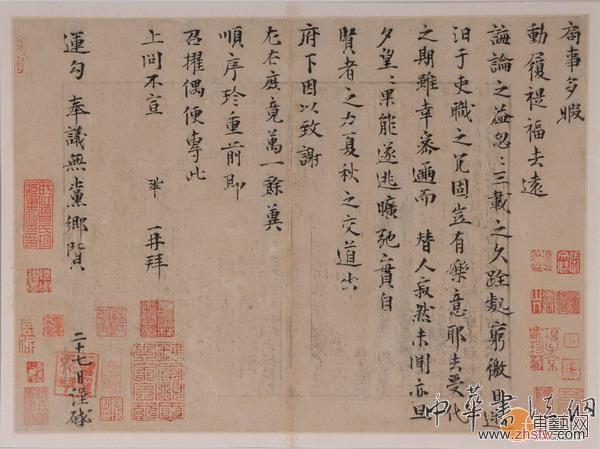 局事多暇
動履禔福去遠
誨論之益忽〻三載之久跧處窮徼日迷
汨于吏職之冗固豈有樂意耶去受代
之期雖幸密邇而替人寂然未聞亦旦
夕望〻果能遂逃曠弛之責自
賢者之力夏秋之交道出
府下因以致謝
左右庶竟萬一餘冀
順序珍重前即
召擢偶便專此
上問不宣 鞏 再拜
運勾 奉議無黨鄉賢
二十七日謹啟
中華書法網
www.zhstw.com